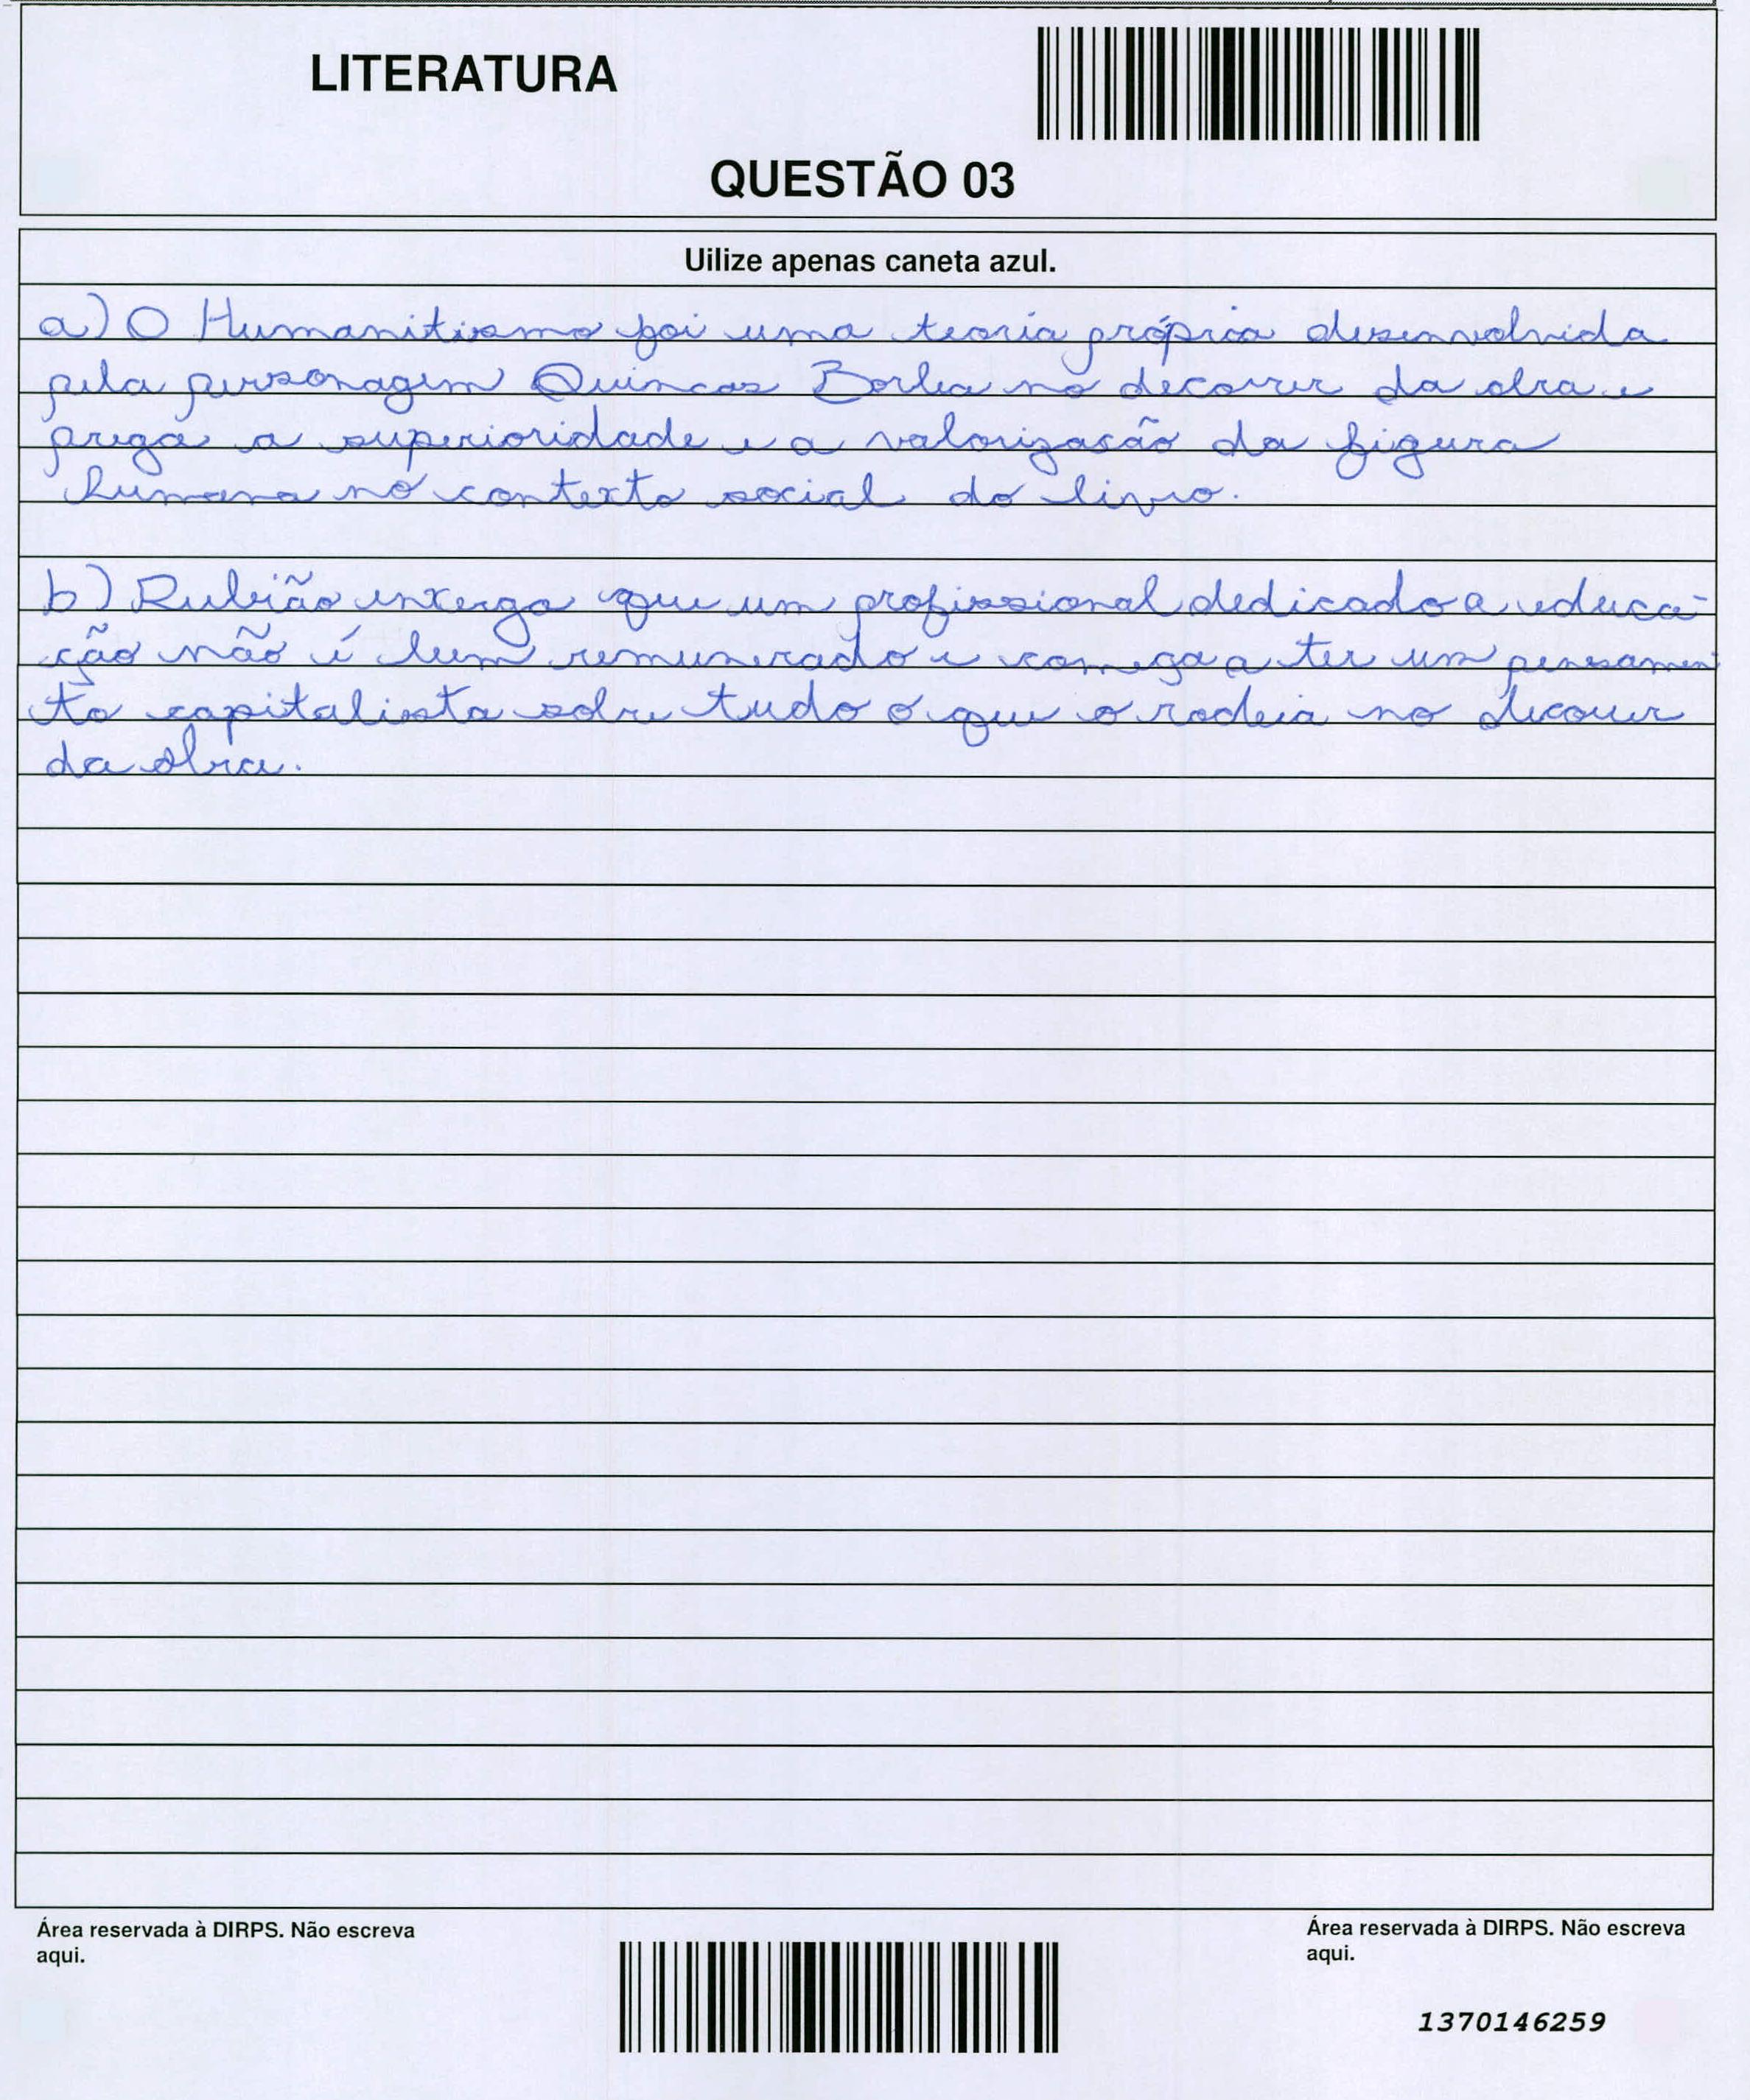 LITERATURA
QUESTÃO 03
Uilize apenas caneta azul.
a) O Humanitismo foi uma teoria própria desenvolvida
pela personagem Quincas Borba no decorrer da obra e
prega a superioridade e a valorização da figura
humana no contexto social do livro.
b) Rubião enxerga que um profissional dedicado a educa-
ção não é bem remunerado e começa a ter um pensamen
to capitalista sobre tudo o que o rodeia no decorrer
da obra.
Área reservada à DIRPS. Não escreva
aqui.
Área reservada à DIRPS. Não escreva
aqui.
1370146259